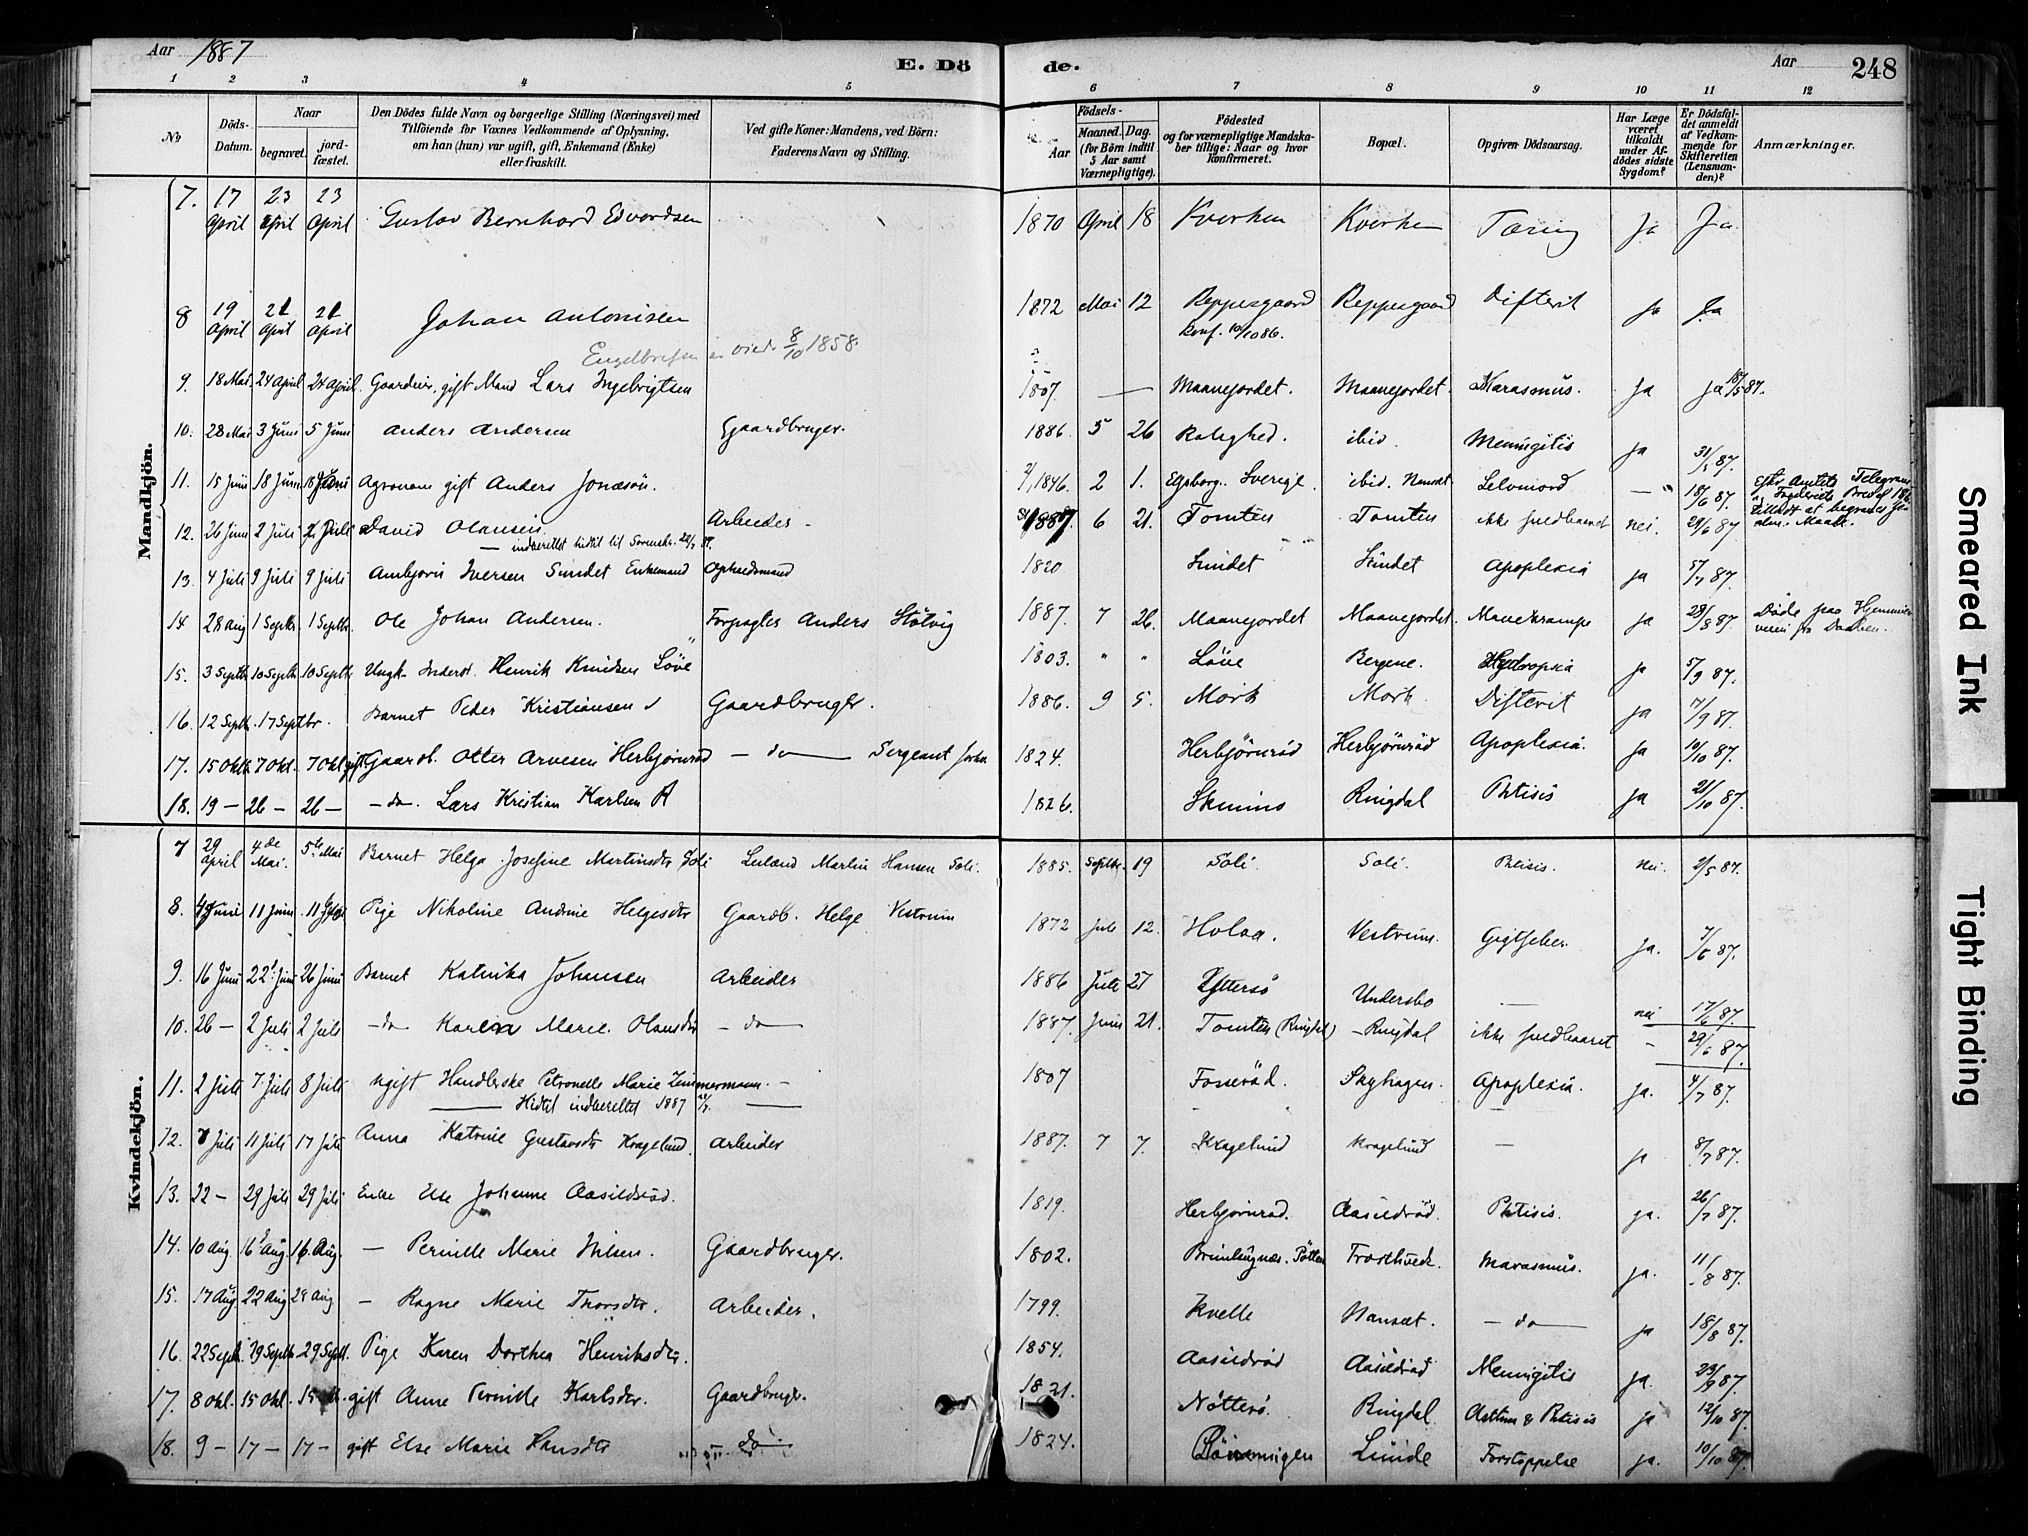 Aar 1887
E. Dö
de.
Aar
248
1 2 3 4 5 6 7 8 9 10 11 12
No
Döds-
Datum.
Naar
begravet.
jord-
fæstet.
Den Dödes fulde Navn og borgerlige Stilling (Næringsvei) med
Tilföiende for Voxnes Vedkommende af Oplysning,
om han (hun) var ugift, gift, Enkemand (Enke)
eller fraskilt.
Ved gifte Koner: Mandens, ved Börn:
Faderens Navn og Stilling.
Födsels-
Aar
Maaned. Dag.
(for Börn indtil
5 Aar samt
Værnepligtige).
Födested
og for værnepligtige Mandska-
ber tillige: Naar og hvor
Konfirmeret.
Bopæl.
Opgiven Dödsaarsag.
Har Læge
været
tilkaldt
under Af-
dödes sidste
Sygdom?
Er Dödsfal-
det anmeldt
af Vedkom-
mende for
Skifteretten
(Lensman-
den)?
Anmærkninger.
Mandkjön.
7. 17 April 23 April 23 April Gustav Bernhard Edvardsen 1870 April 18 Kverken Kverken Tæring Ja Ja
8 19 April 21 April 21 April Johan Antonisen 1872 Mai 12 Reppesgaard Reppesgaard Difterit Ja Ja
Konf. 10/10 86.
Engelbretsen viet 8/10 1858.
9. 18 Mai 24 April 24 April Gaardeier, gift Mand Lars Ingebrigtsen 1807. — Maanejordet. Maanejordet. Marasmus. Ja Ja 18/5 87.
10. 28 Mai 3 Juni 5 Juni Anders Andersen Gaardbruger. 1886. 5 26 Rolighed. ibid. Meningitis Ja 31/5 87.
11. 15 Juni 18 Juni 18 Juni Agronom gift Anders Jonæsön. 1846. 2 1. Elfsborg. Sverige ibid. Nansæt Selvmord — 18/6 87. Efter Amtets Telegram
12. 26 Juni 2 Juli 2 Juli David Olausen Arbeider. 1887. 6 21. Tomten Tomten ikke fuldbaaret nei. 29/6 87
— indberettet hidtil til Sorensk. 22/7 87.
13. 4 Juli 9 Juli 9 Juli Ambjorn Iversen Sundet Enkemand Opholdsmand 1820 Sundet Sundet Apoplexia ja 5/7 87.
14 28 Aug 1 Septbr. 1 Septbr. Ole Johan Andersen. Forpagter Anders Stölvig 1887. 7 26. Maanejordet Maanejordet. Mavekrampe ja 29/8 87. Döde paa Hjemmeveien fra Daaben.
15. 3 Septbr 10 Septbr 10 Septbr Ungk. Inderst Henrik Knudsen Löve 1803. " " Löve Bergene. Hydropsia ja 5/9 87.
16. 12 Septbr. 17 Septbr. Barnet Peder Kristiansen Gaardbruger. 1886. 9 5. Mörk Mörk Difterit ja 7/9 87.
17. 1 5 Okt. 7 Okt. 7 Okt gift Gaardb. Otter Arvesen Herbjörnröd — do — Sergeant 1824. Herbjörnröd Herbjörnröd Apoplexia. ja 10/10 87.
18. 19 — 26 — 26 — — do. Lars Kristian Karlsen 1826. Ringdal Phtisis ja 21/10 87.
Kvindekjön.
7 29 April 4de Mai. 5te Mai Barnet Helga Josefine Martinsdtr Soli Leilænd Martin Hansen Soli. 1885. Septbr. 19 Soli Soli. Phtisis. nei. 2/5 87.
8. 4 Juni 11 Juni 11 Juni Pige Nikoline Andrine Helgesdtr Gaardb. Helge Vestrum 1872 Juli 12. Holaa. Vestrum. Gigtfeber. ja. 7/6 87.
9. 16 Juni 22 Juni 26 Juni Barnet Katrika Johnsen Arbeider 1886 Juli 27 Yttersö Undersbo — nei 17/6 87.
10. 26 — 2 Juli 2 Juli — do Karen Marie Olausdtr — do — 1887. Juni 21. Tomten (Ringdal) — Ringdal ikke fuldbaaret — 29/6 87.
11. 2 Juli 7 Juli 8 Juli ugift Handlerske Petronelle Marie Zimmermann. — 1807 Fosseröd. Skyhagen. Apoplexia. ja. 4/7 87.
— Hidtil indberettet 1887 —
12. 7 Juli 11 Juli 17 Juli Anna Katrine Gustavsdtr Kragelund. Arbeider 1887. 7 7. Kragelund Kragelund — ja 8/7 87.
13. 22 — 29 Juli 29 Juli Enke Else Johanne Aasildröd. 1819. Herbjörnröd. Aasildröd. Phtisis. ja. 26/7 87.
14. 10 Aug. 16 Aug 16. Aug. — Pernille Marie Nilsen. Gaardbruger. 1802. Brunlangnæs. Pötten Trosthvedt. Marasmus. ja. 11/8 87.
15. 17 Aug. 22 Aug 22 Aug — Ragne Marie Thorsdtr. Arbeider. 1799. Kvelle Nansæt. — do — ja 18/8 87.
16. 22 Septbr. 29 Septbr 29 Septbr. Pige Karen Dorthea Henriksdtr. 1854. Aasildröd Aasildröd Meningitis ja. 23/9 87.
17. 8 Okt. 15 Okt. 15 gift Anne Pernille Karlsdtr. Gaardbruger. 1821. Nötterö. Ringdal Asthm & Phtisis ja 12/10 87.
18. 9 — 17 — 17 — gift Else Marie Hansdtr do 1824. Rönningen Lunde Forstoppelse ja. 10/10 87.
Smeared Ink
Tight Binding